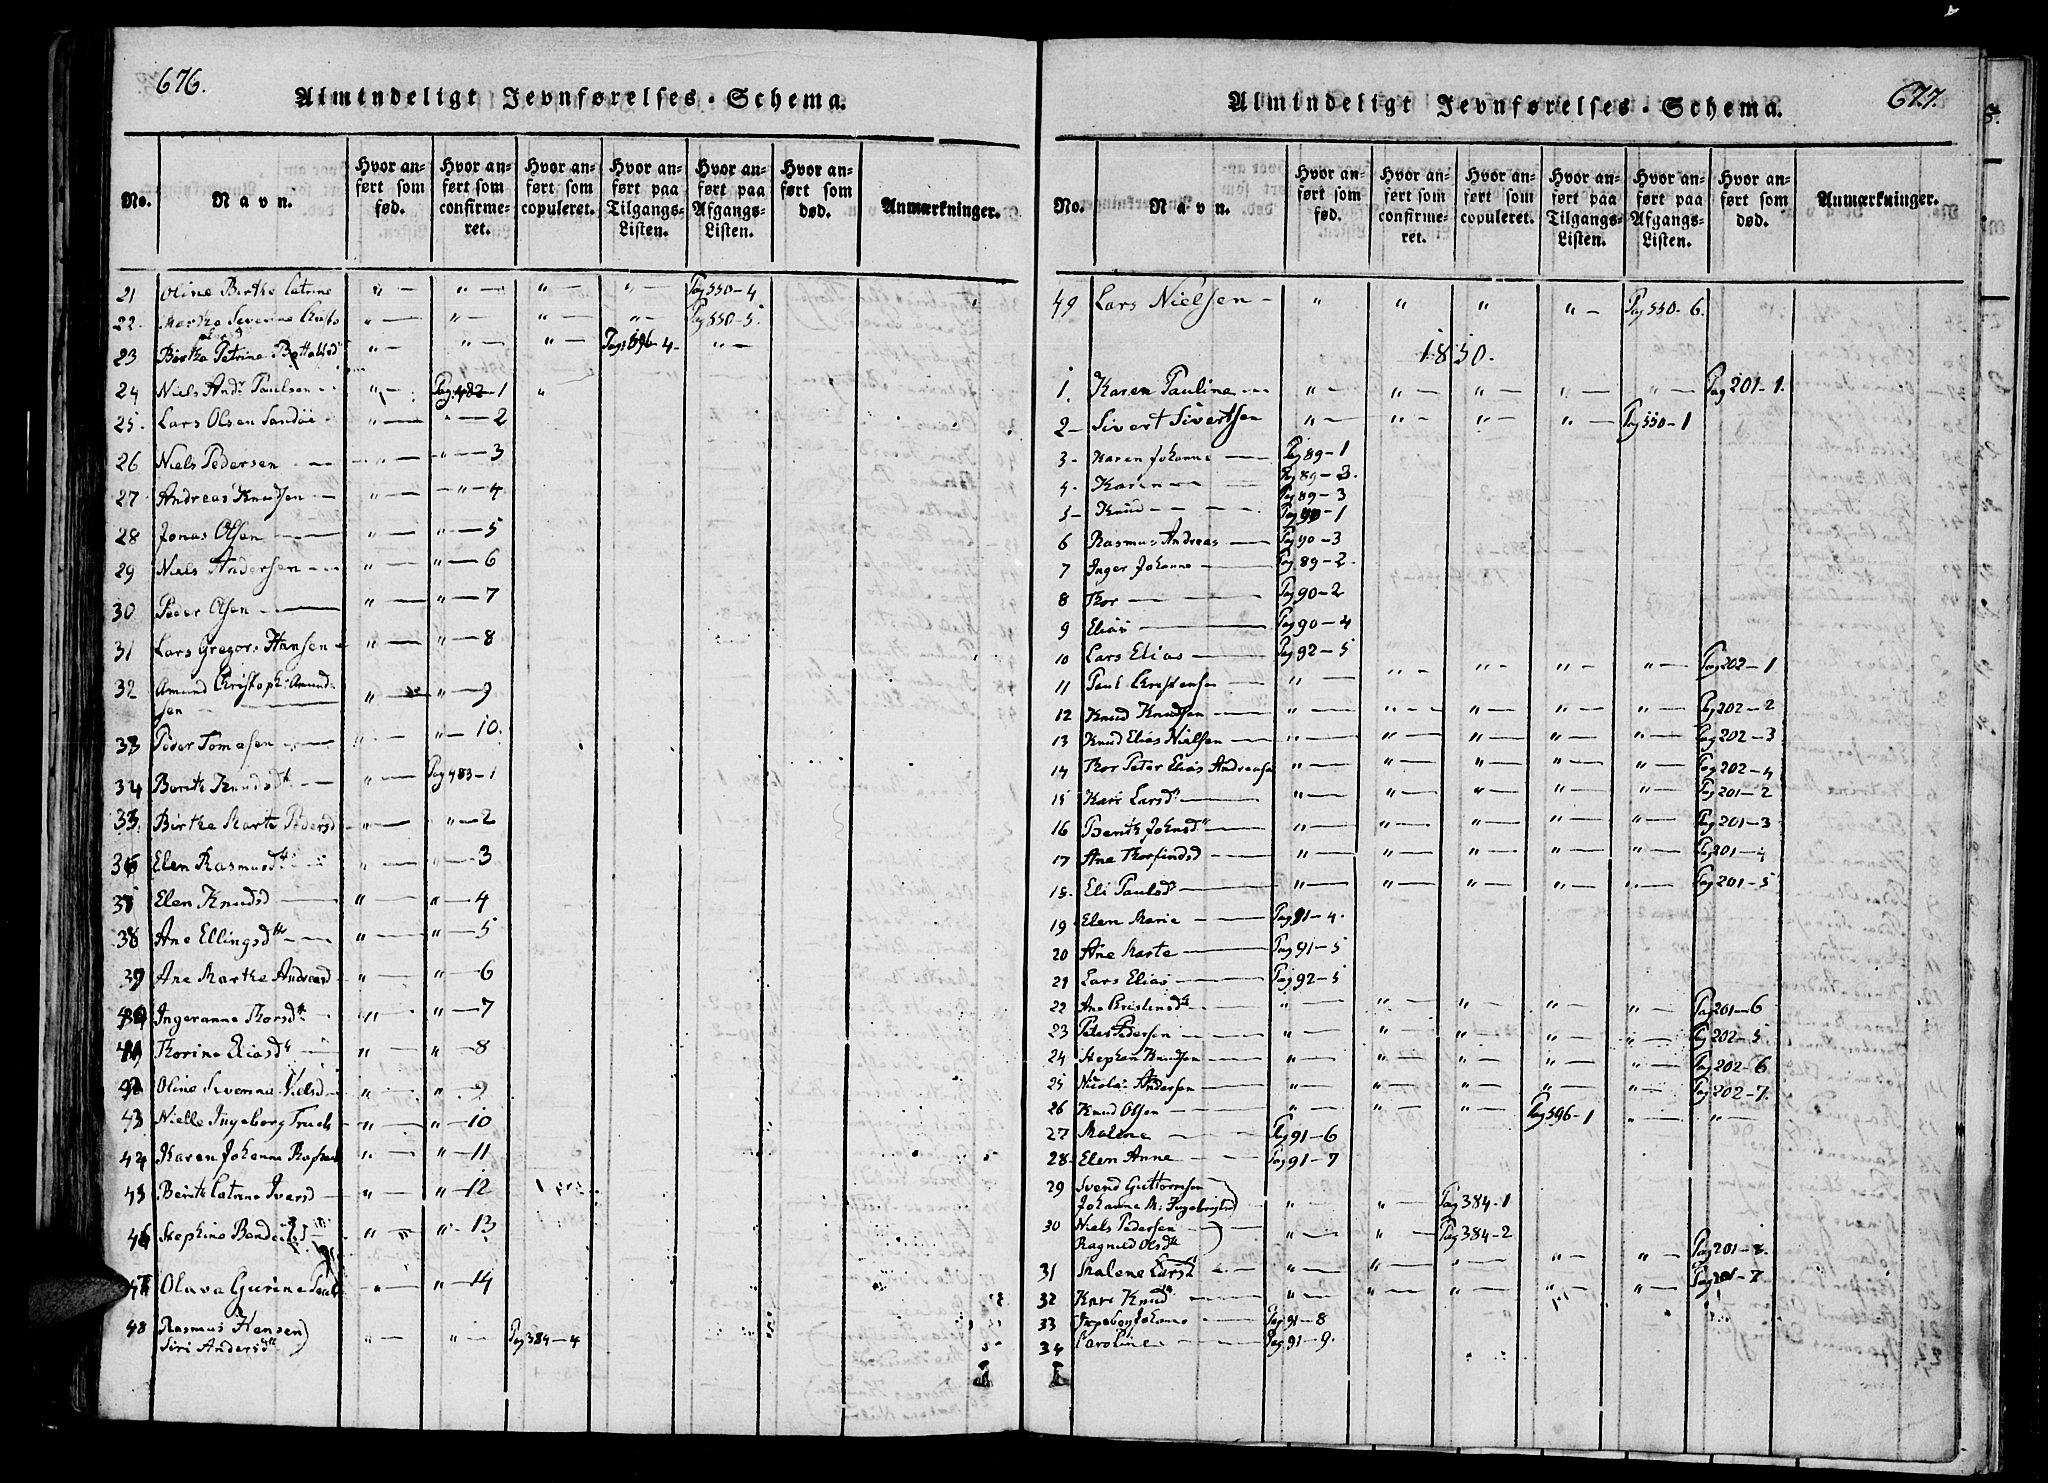 676.
Almindeligt Jevnførelses-Schema.
No.
Navn.
Hvor anført som fød.
Hvor anført som confirmeret.
Hvor anført som copuleret.
Hvor anført paa Tilgangs-Listen.
Hvor anført paa Afgangs-Listen.
Hvor anført som død.
Anmærkninger.
21 Oline Birthe Catrine " — " — " — " — Pag 550-4
22. Marthe Severine " — " — " — " — Pag 550-5.
23 Birthe Petrine " — " — " — Pag: 596-4. " —
24 Niels Andr Paulsen " — Pag. 482-1 "
25. Lars Olsen Sandøe " — " — 2
26 Niels Pedersen — " — " — 3
27 Andreas Knudsen — " — " — 4
28 Jonas Olsen — " — " — 5
29 Niels Andersen — " — " — 6
30 Peder Olsen — " — " — 7
31 Lars Gregors Hansen " — " — 8
32 Amund Christoph: Amund-
sen — " — " — 9
33 Peder Tomasen — " — " — 10.
34 Berith Knudsd — " — Pag 483-1
35. Birthe Marte Pedersd " — " — 2
36 Elen Rasmusd " — " — 3
37 Elen Knudsd — " — " — 4
38 Ane Ellingsd — " — " — 5
39 Ane Marthe Andreasd " — " — 6
40 Ingeranne Thorsd " — " — 7
41 Thorine Eliasd " — " — 8
42 Oline Severine Nielsd " — " — 9
43 Nielle Ingeborg " — " — 10
44 Karen Johanne " — " — 11
45 Berith Catrine Iversd — " — " — 12
46 Stephine " — " — 13
47 Olava Gurine " — " — 14
48 Rasmus Hansen)
Siri Andersd " — " — Pag 384-4
677.
Almindeligt Jevnførelses-Schema.
No.
Navn.
Hvor anført som fød.
Hvor anført som confirmeret.
Hvor anført som copuleret.
Hvor anført paa Tilgangs-Listen.
Hvor anført paa Afgangs-Listen.
Hvor anført som død.
Anmærkninger.
49 Lars Nielsen — " " " " — Pag 550-6.
1850.
1. Karen Pauline — " — " — " — " — " — Pag 201-1.
2 — Sivert Sivertsen " — " — " — " — Pag 550-1
3 — Karen Johanne — Pag 89-1
4. Karen — Pag 89-2.
5 — Knud — Pag 89-3
Pag 90-1
6 Rasmus Andreas — Pag 90-3
7 Inger Johanne — Pag 89-2.
8 Thor — Pag 90-2
9 Elias — Pag 90-4
10 Lars Elias — Pag 92-5
11 Paul Christensen — " — " — " — " — " — Pag 202-1
12 Knud Knudsen — " — " — " — " — " — Pag 202-2
13 Knud Elias Nielsen — " — " — " — " — " — Pag 202-3
14 Thor Peter Elias Andreasen " — " — " — " — " — Pag 202-4
15 Kari Larsd — " — " — " — " — " — Pag 201-2
16 Berith Johnsd — " — " — " — " — " — Pag 201-3
17 Ane Thorfindsd — " — " — " — " — " — Pag 201-4
18. Eli Paulsd — " — " — " — " — " — Pag 201-5
19 Elen Marie — Pag 91-4.
20 Ane Marte — Pag 91-5
21 Lars Elias — Pag 92-5
22 Ane Cristensd " — " — " — " — " — Pag 201-6
23 Peter Pedersen — " — " — " — " — " — Pag 202-5
24 Stephen Knudsen — " — " — " — " — " — Pag 202-6
25 Nicolai Andersen — " — " — " — " — " — Pag 202-7.
26 Knud Olsen — " — " — " — Pag 596-1 " — " —
27 Malene — Pag 91-6
28 — Elen Anne — Pag 91-7
29 Svend Guttormsen
Johanne M. Ingebrigtsd) " — " — Pag 384-1
30 Niels Pedersen —
Ragnild Olsd) " — " — Pag 384-2
31 Malene Larsd — " — " — " — " — " — Pag 201-8.
32 Kari Knud — " — " — " — " — " — Pag 201-7
33 Ingeborg Johanne — Pag 91-8
34 Caroline — Pag 91-9.